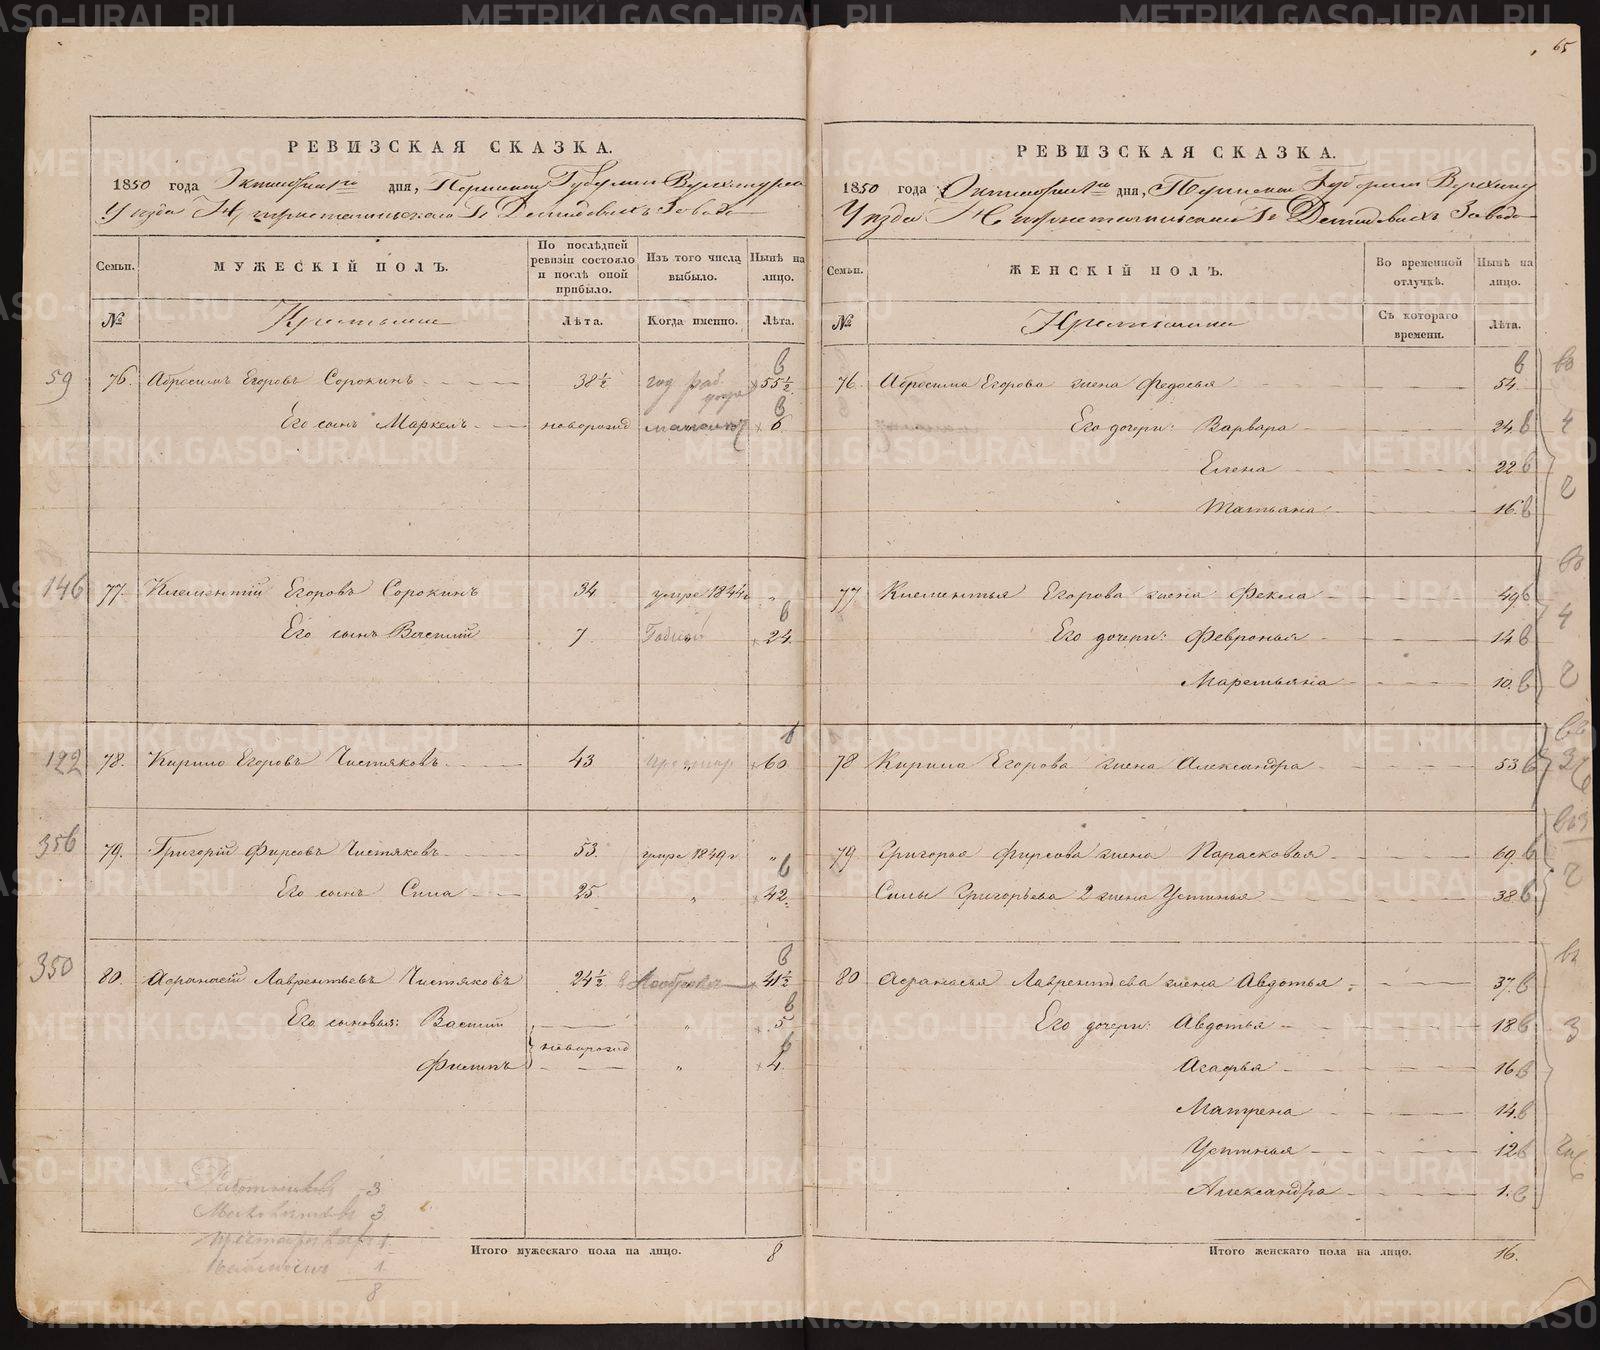 65
РЕВИЗСКАЯ СКАЗКА.
1850 года Октября дня, Пермской Губернии Верхотурска
Уѣзда Н. Гг Демидовыхъ Завода
Семьи. МУЖЕСКІЙ ПОЛЪ. По послѣдней ревизіи состояло и послѣ оной прибыло. Изъ того числа выбыло. Нынѣ на лицо.
№ Крестьяне Лѣта. Когда именно. Лѣта.
59 76. Абросимъ Егоровъ Сорокинъ 38½ 55½
Его сынъ Маркелъ новорожд 6
146 77. Климентій Егоровъ Сорокинъ 34 умре 1844 "
Его сынъ Василій 7 24.
122 78. Кирило Егоровъ Чистяковъ 43 " 60
356 79. Григорій Фирсовъ Чистяковъ 53. умре 1849 г "
Его сынъ Сила 25 " 42.
350 80. Афанасій Лаврентьевъ Чистяковъ 24½ 41½
Его сыновья: Василій " 5
новорожд
Филипъ " 4.
3
3
1
1
8
Итого мужескаго пола на лицо. 8
РЕВИЗСКАЯ СКАЗКА.
1850 года Октября дня, Пермской Губернии Верхотур
Уѣзда Н. Гг Демидовыхъ Завода
Семьи. ЖЕНСКІЙ ПОЛЪ. Во временной отлучкѣ. Нынѣ на лицо.
№ Крестьянки Съ котораго времени. Лѣта.
76. Абросима Егорова жена Федосья 54
Его дочери: Варвара 24 в
Елена 22 в
Татьяна 16 в
77 Климентья Егорова жена Фекла 49 в
Его дочери: Февронья 14 в
Маремьяна 10. в
78 Кирила Егорова жена Александра 53 в
79 Григорья Фирсова жена Парасковья 69 в
Силы Григорьева 2 жена Устинья 38 в
80 Афанасья Лаврентьева жена Авдотья 37. в
Его дочери: Авдотья 18 в
Агафья 16 в
Матрена 14 в
Устинья 12 в
Александра 1. в
Итого женскаго пола на лицо. 16.
METRIKI.GASO-URAL.RU